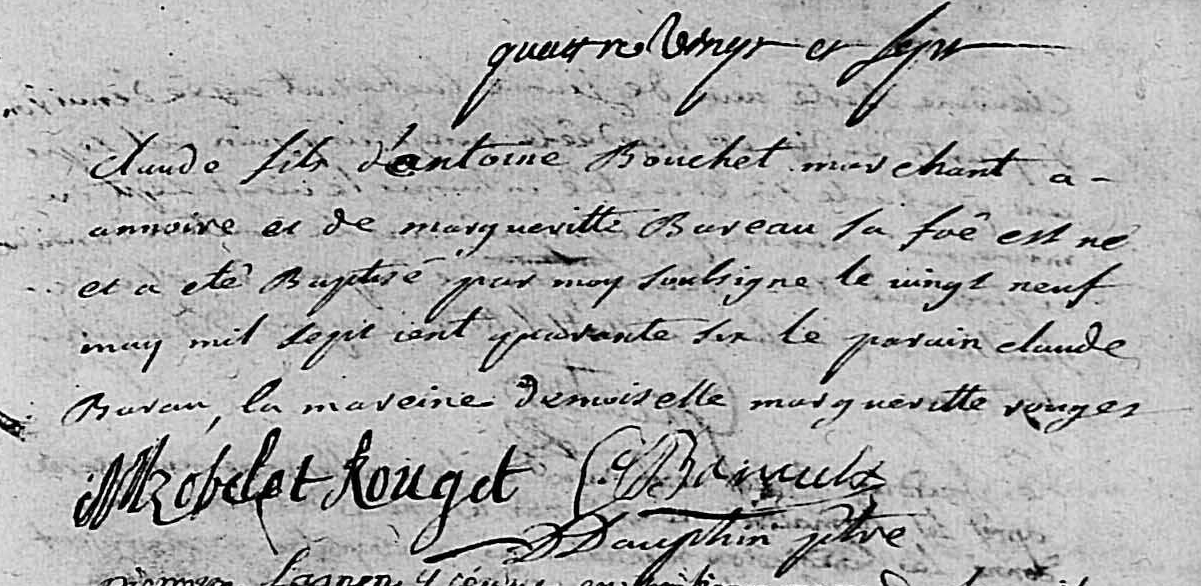 quatre vingt et sept
claude fils d'antoine Bouchet marchant a-
annoire et de margueritte Bareau sa fãe est né
et a eté Baptisé par moy soubsigne le vingt neuf
may mil sept cent quarante six le parain claude
Barau, la mareine demoiselle margueritte rouget
Robelet Rouget C Barault
D Dauphin ptre